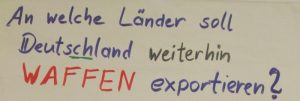 An welche Länder soll
Deutschland weiterhin
WAFFEN exportieren?